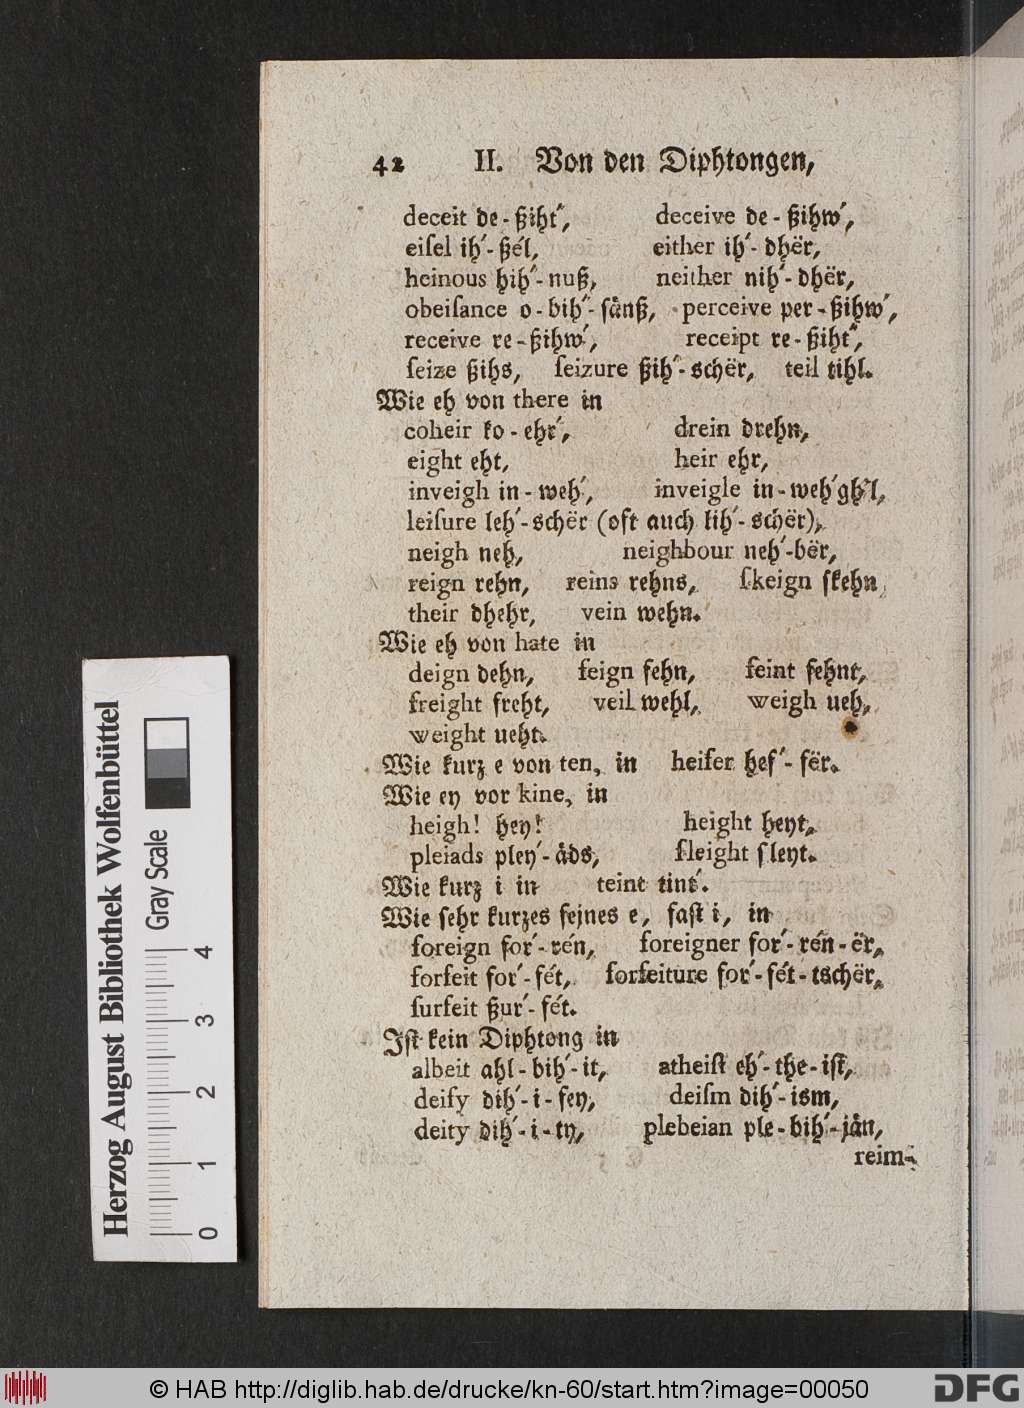 42 II. Von den Diphtongen,
deceit de-ßiht´, deceive de-ßihw´,
eiſel ih´-ßél, either ih´-dhër,
heinous hih´-nuß, neither nih´-dhër,
obeiſance o-bih´-ſånß, perceive per-ßihw´,
receive re-ßihw´, receipt re-ßiht´,
ſeize ßihs, ſeizure ßih´-schër, teil tihl.
Wie eh von there in
coheir ko-ehr´, drein drehn,
eight eht, heir ehr,
inveigh in-weh´, inveigle in-weh´ghl,
leiſure leh´-schër (oft auch lih´-schër),
neigh neh, neighbour neh´-bër,
reign rehn, reins rehns, ſkeign ſkehn,
their dhehr, vein wehn.
Wie eh von hate in
deign dehn, feign fehn, feint fehnt,
freight freht, veil wehl, weigh ueh,
weight ueht.
Wie kurz e von ten, in heifer hef´-fër.
Wie ey vor kine, in
heigh! hey! height heyt,
pleiads pley´-åds, ſleight ſleyt.
Wie kurz i in teint tint´.
Wie ſehr kurzes fejnes e, faſt i, in
foreign for´-rén, foreigner for´-rén-ër,
forfeit for´-fét, forfeiture for´-fét-tschër,
ſurfeit ßur´-fét.
Iſt kein Diphtong in
albeit ahl-bih´-it, atheiſt eh´-the-iſt,
deify dih´-i-fey, deiſm dih´-ism,
deity dih´-i-ty, plebeian ple-bih´-jån,
reim-
Herzog August Bibliothek Wolfenbüttel
Gray Scale
0 1 2 3 4
© HAB http://diglib.hab.de/drucke/kn-60/start.htm?image=00050
DFG